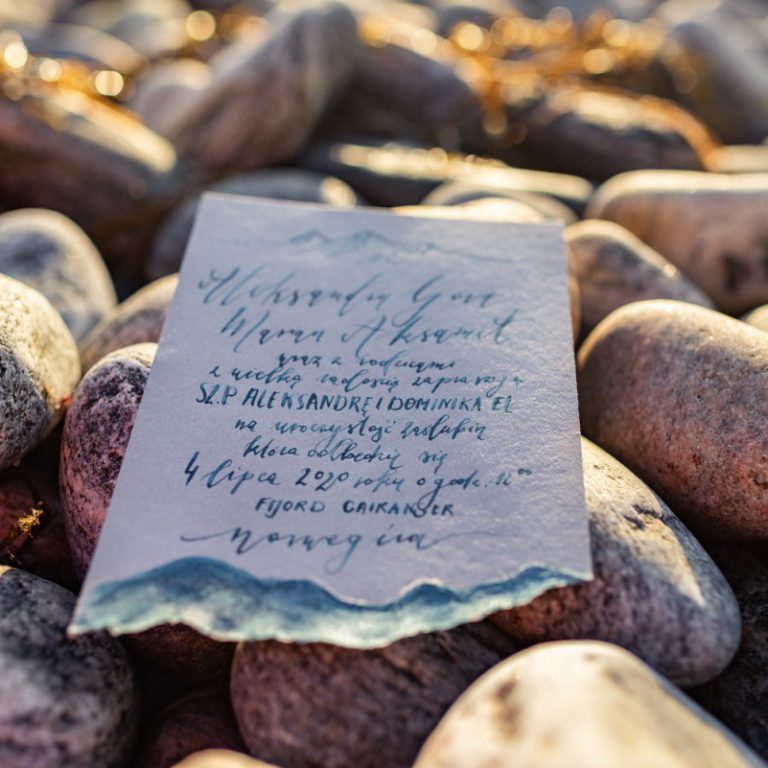 Aleksandra Gora
Marcin Aksamit
wraz z rodzicami
z wielką radością zapraszają
SZ.P ALEKSANDRĘ I DOMINIKA EL
na uroczystość zaślubin
która odbędzie się
4 lipca 2020 roku o godz. 12⁰⁰
FJORD GAIRANGER
Norwegia